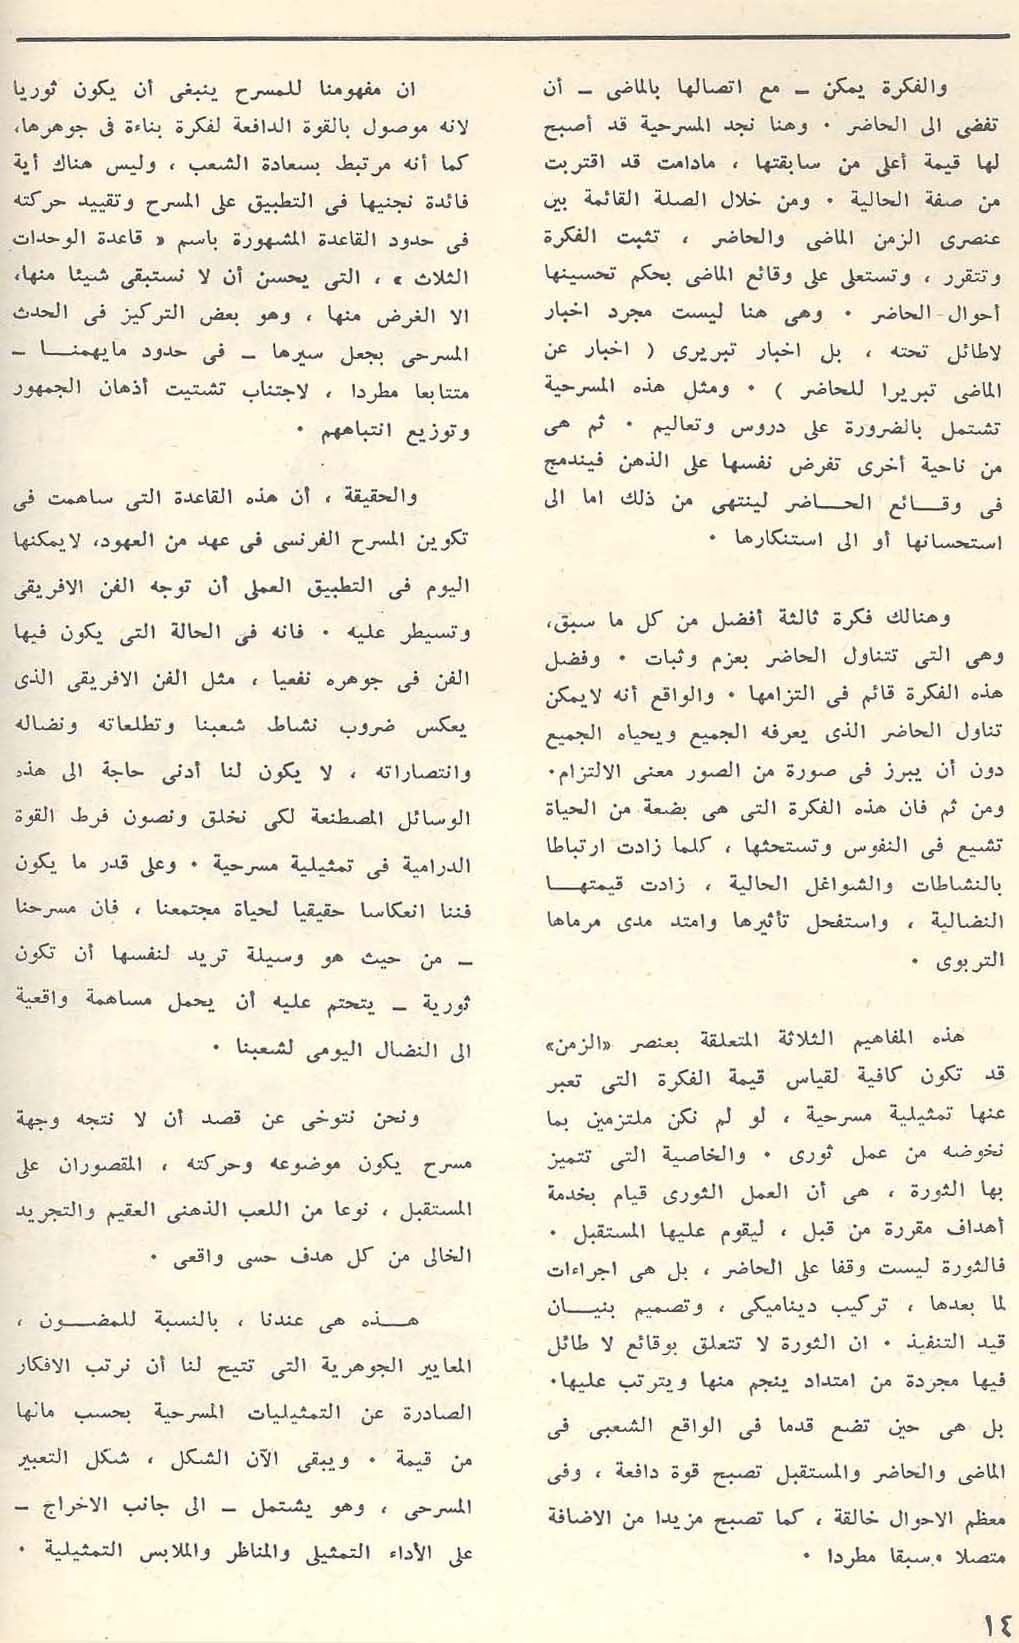 والفكرة يمكن ــ مع اتصالها بالماضى ــ أن
تفضى الى الحاضر ٠ وهنا نجد المسرحية قد أصبح
لها قيمة أعلى من سابقتها ، مادامت قد اقتربت
من صفة الحالية ٠ ومن خلال الصلة القائمة بين
عنصرى الزمن الماضى والحاضر ، تثبت الفكرة
وتتقرر ، وتستعلى على وقائع الماضى بحكم تحسينها
أحوال الحاضر ٠ وهى هنا ليست مجرد اخبار
لاطائل تحته ، بل اخبار تبريرى ( اخبار عن
الماضى تبريرا للحاضر ) ٠ ومثل هذه المسرحية
تشتمل بالضرورة على دروس وتعاليم ٠ ثم هى
من ناحية أخرى تفرض نفسها على الذهن فيندمج
فى وقـــائع الحـــاضر لينتهى من ذلك اما الى
استحسانها أو الى استنكارها ٠
وهنالك فكرة ثالثة أفضل من كل ما سبق،
وهى التى تتناول الحاضر بعزم وثبات ٠ وفضل
هذه الفكرة قائم فى التزامها ٠ والواقع أنه لايمكن
تناول الحاضر الذى يعرفه الجميع ويحياه الجميع
دون أن يبرز فى صورة من الصور معنى الالتزام٠
ومن ثم فان هذه الفكرة التى هى بضعة من الحياة
تشيع فى النفوس وتستحثها ، كلما زادت ارتباطا
بالنشاطات والشواغل الحالية ، زادت قيمتهـــا
النضالية ، واستفحل تأثيرها وامتد مدى مرماها
التربوى ٠
هذه المفاهيم الثلاثة المتعلقة بعنصر «الزمن»
قد تكون كافية لقياس قيمة الفكرة التى تعبر
عنها تمثيلية مسرحية ، لو لم نكن ملتزمين بما
نخوضه من عمل ثورى ٠ والخاصية التى تتميز
بها الثورة ، هى أن العمل الثورى قيام بخدمة
أهداف مقررة من قبل ، ليقوم عليها المستقبل ٠
فالثورة ليست وقفا على الحاضر ، بل هى اجراءات
لما بعدها ، تركيب ديناميكى ، وتصميم بنيـــان
قيد التنفيذ ٠ ان الثورة لا تتعلق بوقائع لا طائل
فيها مجردة من امتداد ينجم منها ويترتب عليها٠
بل هى حين تضع قدما فى الواقع الشعبى فى
الماضى والحاضر والمستقبل تصبح قوة دافعة ، وفى
معظم الاحوال خالقة ، كما تصبح مزيدا من الاضافة
متصلا وسبقا مطردا ٠
ان مفهومنا للمسرح ينبغى أن يكون ثوريا
لانه موصول بالقوة الدافعة لفكرة بناءة فى جوهرها،
كما أنه مرتبط بسعادة الشعب ، وليس هناك أية
فائدة نجنيها فى التطبيق على المسرح وتقييد حركته
فى حدود القاعدة المشهورة باسم « قاعدة الوحدات
الثلاث » ، التى يحسن أن لا نستبقى شيئا منها،
الا الغرض منها ، وهو بعض التركيز فى الحدث
المسرحى بجعل سيرها ــ فى حدود مايهمنـــا ــ
متتابعا مطردا ، لاجتناب تشتيت أذهان الجمهور
وتوزيع انتباههم ٠
والحقيقة ، أن هذه القاعدة التى ساهمت فى
تكوين المسرح الفرنسى فى عهد من العهود، لايمكنها
اليوم فى التطبيق العملى أن توجه الفن الافريقى
وتسيطر عليه ٠ فانه فى الحالة التى يكون فيها
الفن فى جوهره نفعيا ، مثل الفن الافريقى الذى
يعكس ضروب نشاط شعبنا وتطلعاته ونضاله
وانتصاراته ، لا يكون لنا أدنى حاجة الى هذه
الوسائل المصطنعة لكى نخلق ونصون فرط القوة
الدرامية فى تمثيلية مسرحية ٠ وعلى قدر ما يكون
فننا انعكاسا حقيقيا لحياة مجتمعنا ، فان مسرحنا
ــ من حيث هو وسيلة تريد لنفسها أن تكون
ثورية ــ يتحتم عليه أن يحمل مساهمة واقعية
الى النضال اليومى لشعبنا ٠
ونحن نتوخى عن قصد أن لا نتجه وجهة
مسرح يكون موضوعه وحركته ، المقصوران على
المستقبل ، نوعا من اللعب الذهنى العقيم والتجريد
الخالى من كل هدف حسى واقعى ٠
هـــذه هى عندنا ، بالنسبة للمضـــون ،
المعايير الجوهرية التى تتيح لنا أن نرتب الافكار
الصادرة عن التمثيليات المسرحية بحسب مالها
من قيمة ٠ ويبقى الآن الشكل ، شكل التعبير
المسرحى ، وهو يشتمل ــ الى جانب الاخراج ــ
على الأداء التمثيلى والمناظر والملابس التمثيلية ٠
١٤